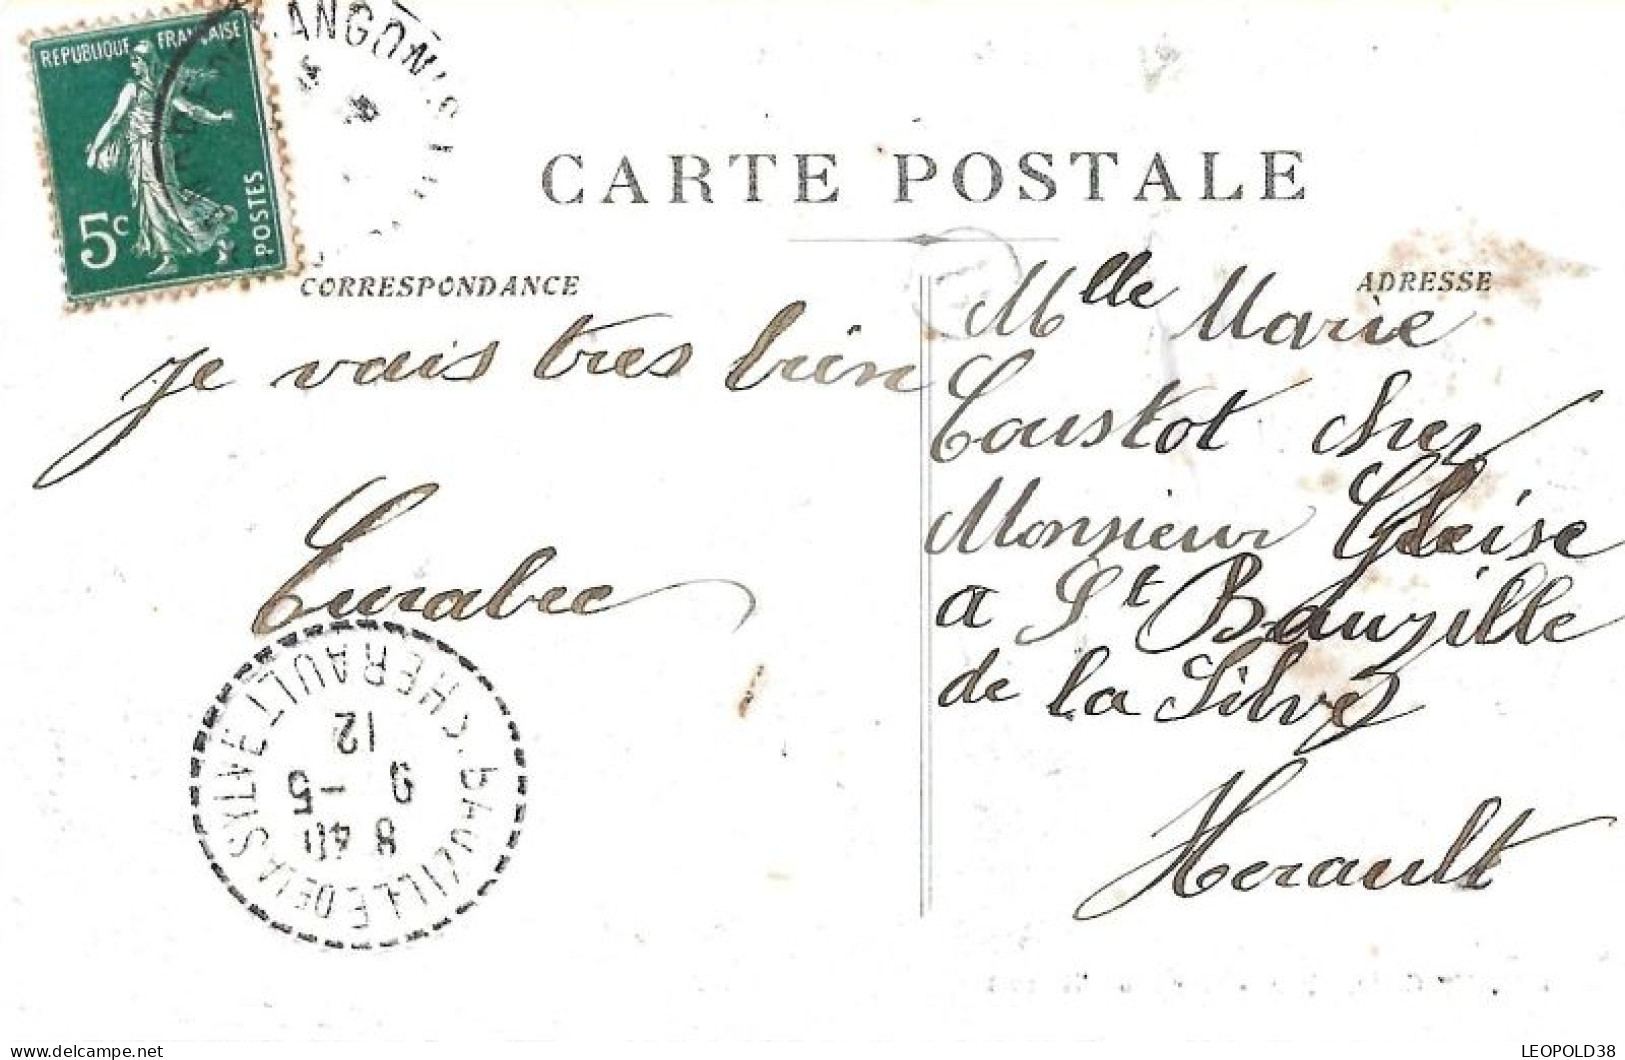 REPUBLIQUE FRANÇAISE
5c POSTES
CARTE POSTALE
CORRESPONDANCE
ADRESSE
je vais tres bien
Mlle Marie
Coustot chez
Monsieur Gleise
a St Bauzille
de la Silve
Herault
BAUZILLE DE LA SYLVE HERAULT
8 40
9 - 5
12
LEOPOLD38